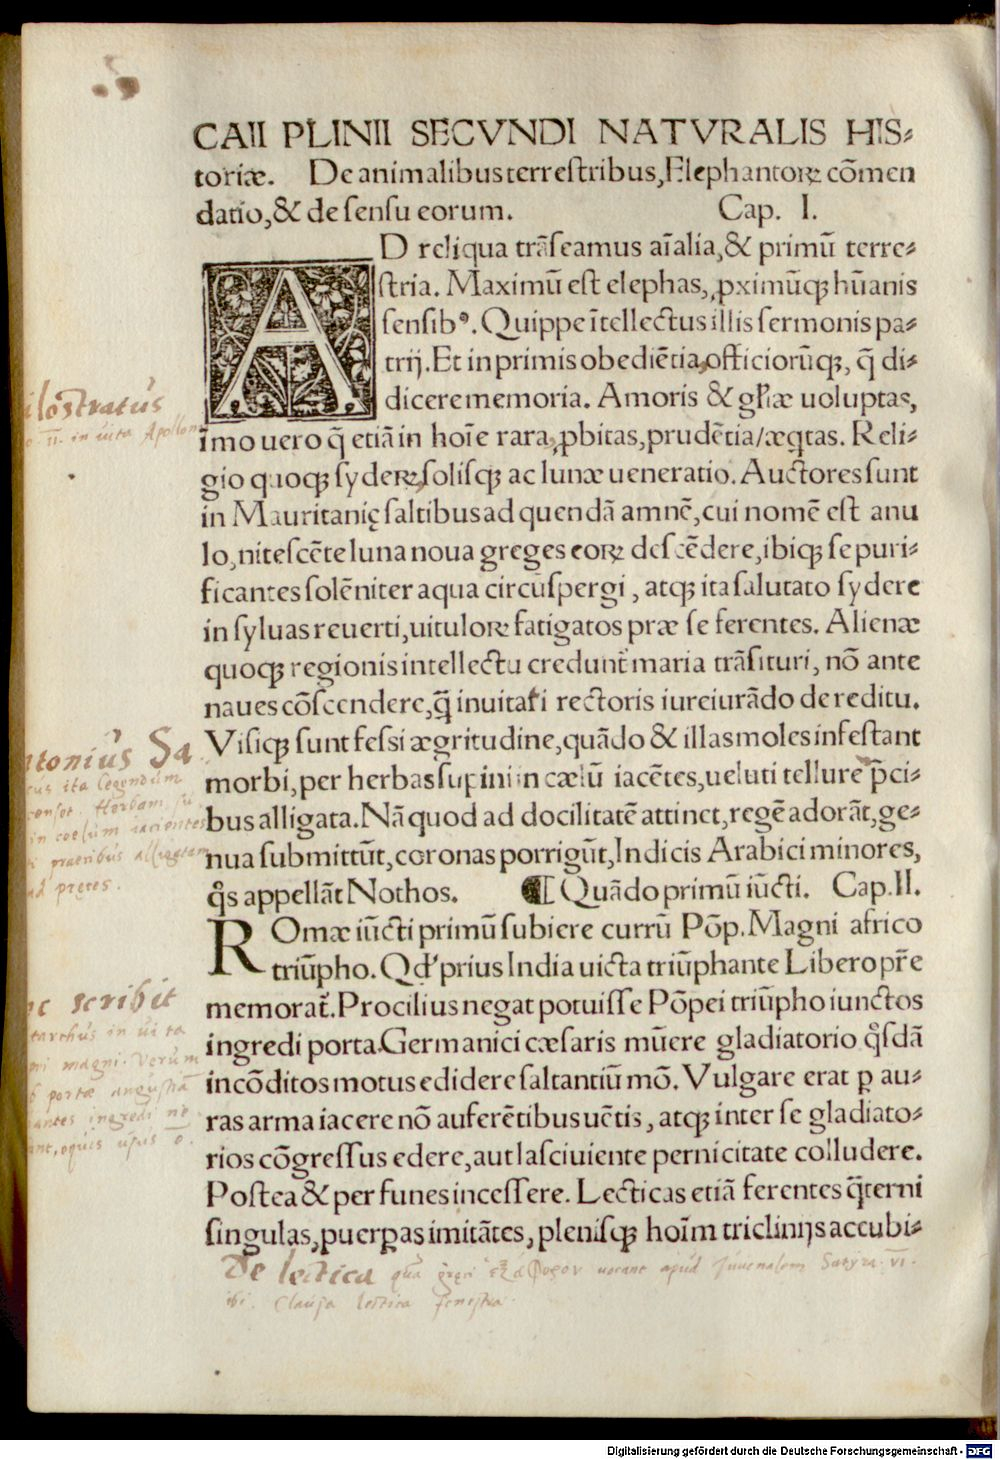 CAII PLINII SECVNDI NATVRALIS HIS⸗
toriæ. De animalibus terrestribus, Elephantoꝝ cōmen
datio, & de sensu eorum. Cap. I.
AD reliqua trāseamus aīalia, & primū terre⸗
stria. Maximū est elephas, ꝓximūqꝫ hūanis
sensibꝰ. Quippe ītellectus illis sermonis pa⸗
trij. Et in primis obediētia, officiorūqꝫ, q̄ di⸗
dicere memoria. Amoris & gl’iæ uoluptas,
imo uero q̄ etiā in hoīe rara, ꝓbitas, prudētia/ æqtas. Reli⸗
gio quoqꝫ syderꝝ, solisqꝫ ac lunæ ueneratio. Auctores sunt
in Mauritanię saltibus ad quendā amnē, cui nomē est anu
lo, nitescēte luna noua greges eoꝝ descēdere, ibiqꝫ se puri⸗
ficantes solēniter aqua circūspergi, atqꝫ ita salutato sydere
in syluas reuerti, uituloꝝ fatigatos præ se ferentes. Alienæ
quoqꝫ regionis intellectu credunt̄ maria trāsituri, nō ante
naues cōscendere, q̄ inuitati rectoris iureiurādo de reditu.
Visiqꝫ sunt fessi ægritudine, quādo & illas moles infestant
morbi, per herbas supini in cælū iacētes, ueluti tellure p̄ci⸗
bus alligata. Nā quod ad docilitatē attinet, regē adorāt, ge⸗
nua submittūt, coronas porrigūt, Indicis Arabici minores,
qͦs appellāt Nothos. ¶ Quādo primū iūcti. Cap. II.
ROmæ iūcti primū subiere currū Pōp. Magni africo
triūpho. Qd’ prius India uicta triūphante Libero pr̄e
memorat̄. Procilius negat potuisse Pōpei triūpho iunctos
ingredi porta. Germanici cæsaris mūere gladiatorio qͦsdā
incōditos motus edidere saltantiū mō. Vulgare erat ꝑ au⸗
ras arma iacere nō auferētibus uētis, atqꝫ inter se gladiato⸗
rios cōgressus edere, aut lasciuiente pernicitate colludere.
Postea & per funes incessere. Lecticas etiā ferentes q̄terni
singulas, puerꝑas imitātes, plenisqꝫ hoīm triclinijs accubi⸗
ilostratus
II. in uita Apollon
ntonius Sa
cus ita legendum
censet. Herbam su
in coelum iacientes
praecibus alligatam
ad pręces.
ec scribit
tarchus in ui ta
pei magni. Verum
portae angustiā
antes ingredi nē
De lectica quā gręci uocant apud Juuenalem Satyra. VI.
ibi. Clausa lectica fenestra.
Digitalisierung gefördert durch die Deutsche Forschungsgemeinschaft - DFG